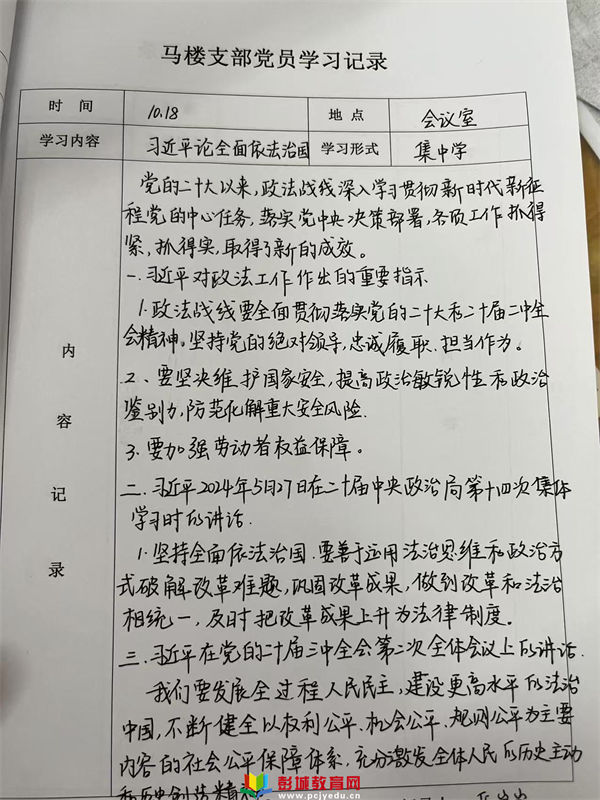 马楼支部党员学习记录
时 间 10.18 地 点 会议室
学习内容 习近平论全面依法治国 学习形式 集中学
内容记录
党的二十大以来,政法战线深入学习贯彻新时代新征
程党的中心任务,落实党中央决策部署,各项工作抓得
紧,抓得实,取得了新的成效。
一.习近平对政法工作作出的重要指示
1.政法战线要全面贯彻落实党的二十大和二十届二中全
会精神。坚持党的绝对领导,忠诚履职、担当作为。
2、要坚决维护国家安全,提高政治敏锐性和政治
鉴别力,防范化解重大安全风险.
3.要加强劳动者权益保障。
二.习近平2024年5月27日在二十届中央政治局第十四次集体
学习时的讲话.
1.坚持全面依法治国.要善于运用法治思维和政治方
式破解改革难题,巩固改革成果,做到改革和法治
相统一,及时把改革成果上升为法律制度。
三.习近平在党的二十届三中全会第二次全体会议上的讲话.
我们要发展全过程人民民主,建设更高水平的法治
中国,不断健全以权利公平、机会公平、规则公平为主要
内容的社会公平保障体系,充分激发全体人民的历史主动
和历史创造精
彭城教育网
www.pcjyedu.cn